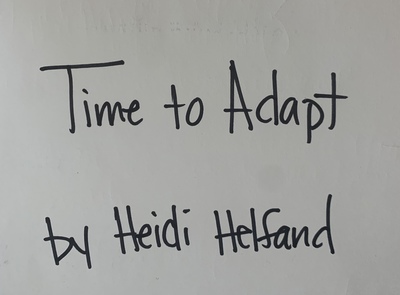 Time to Adapt
by Heidi Helfand